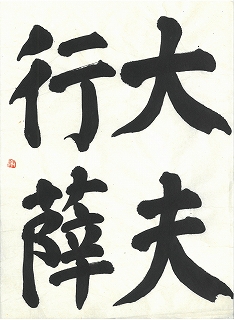 大夫
行薛